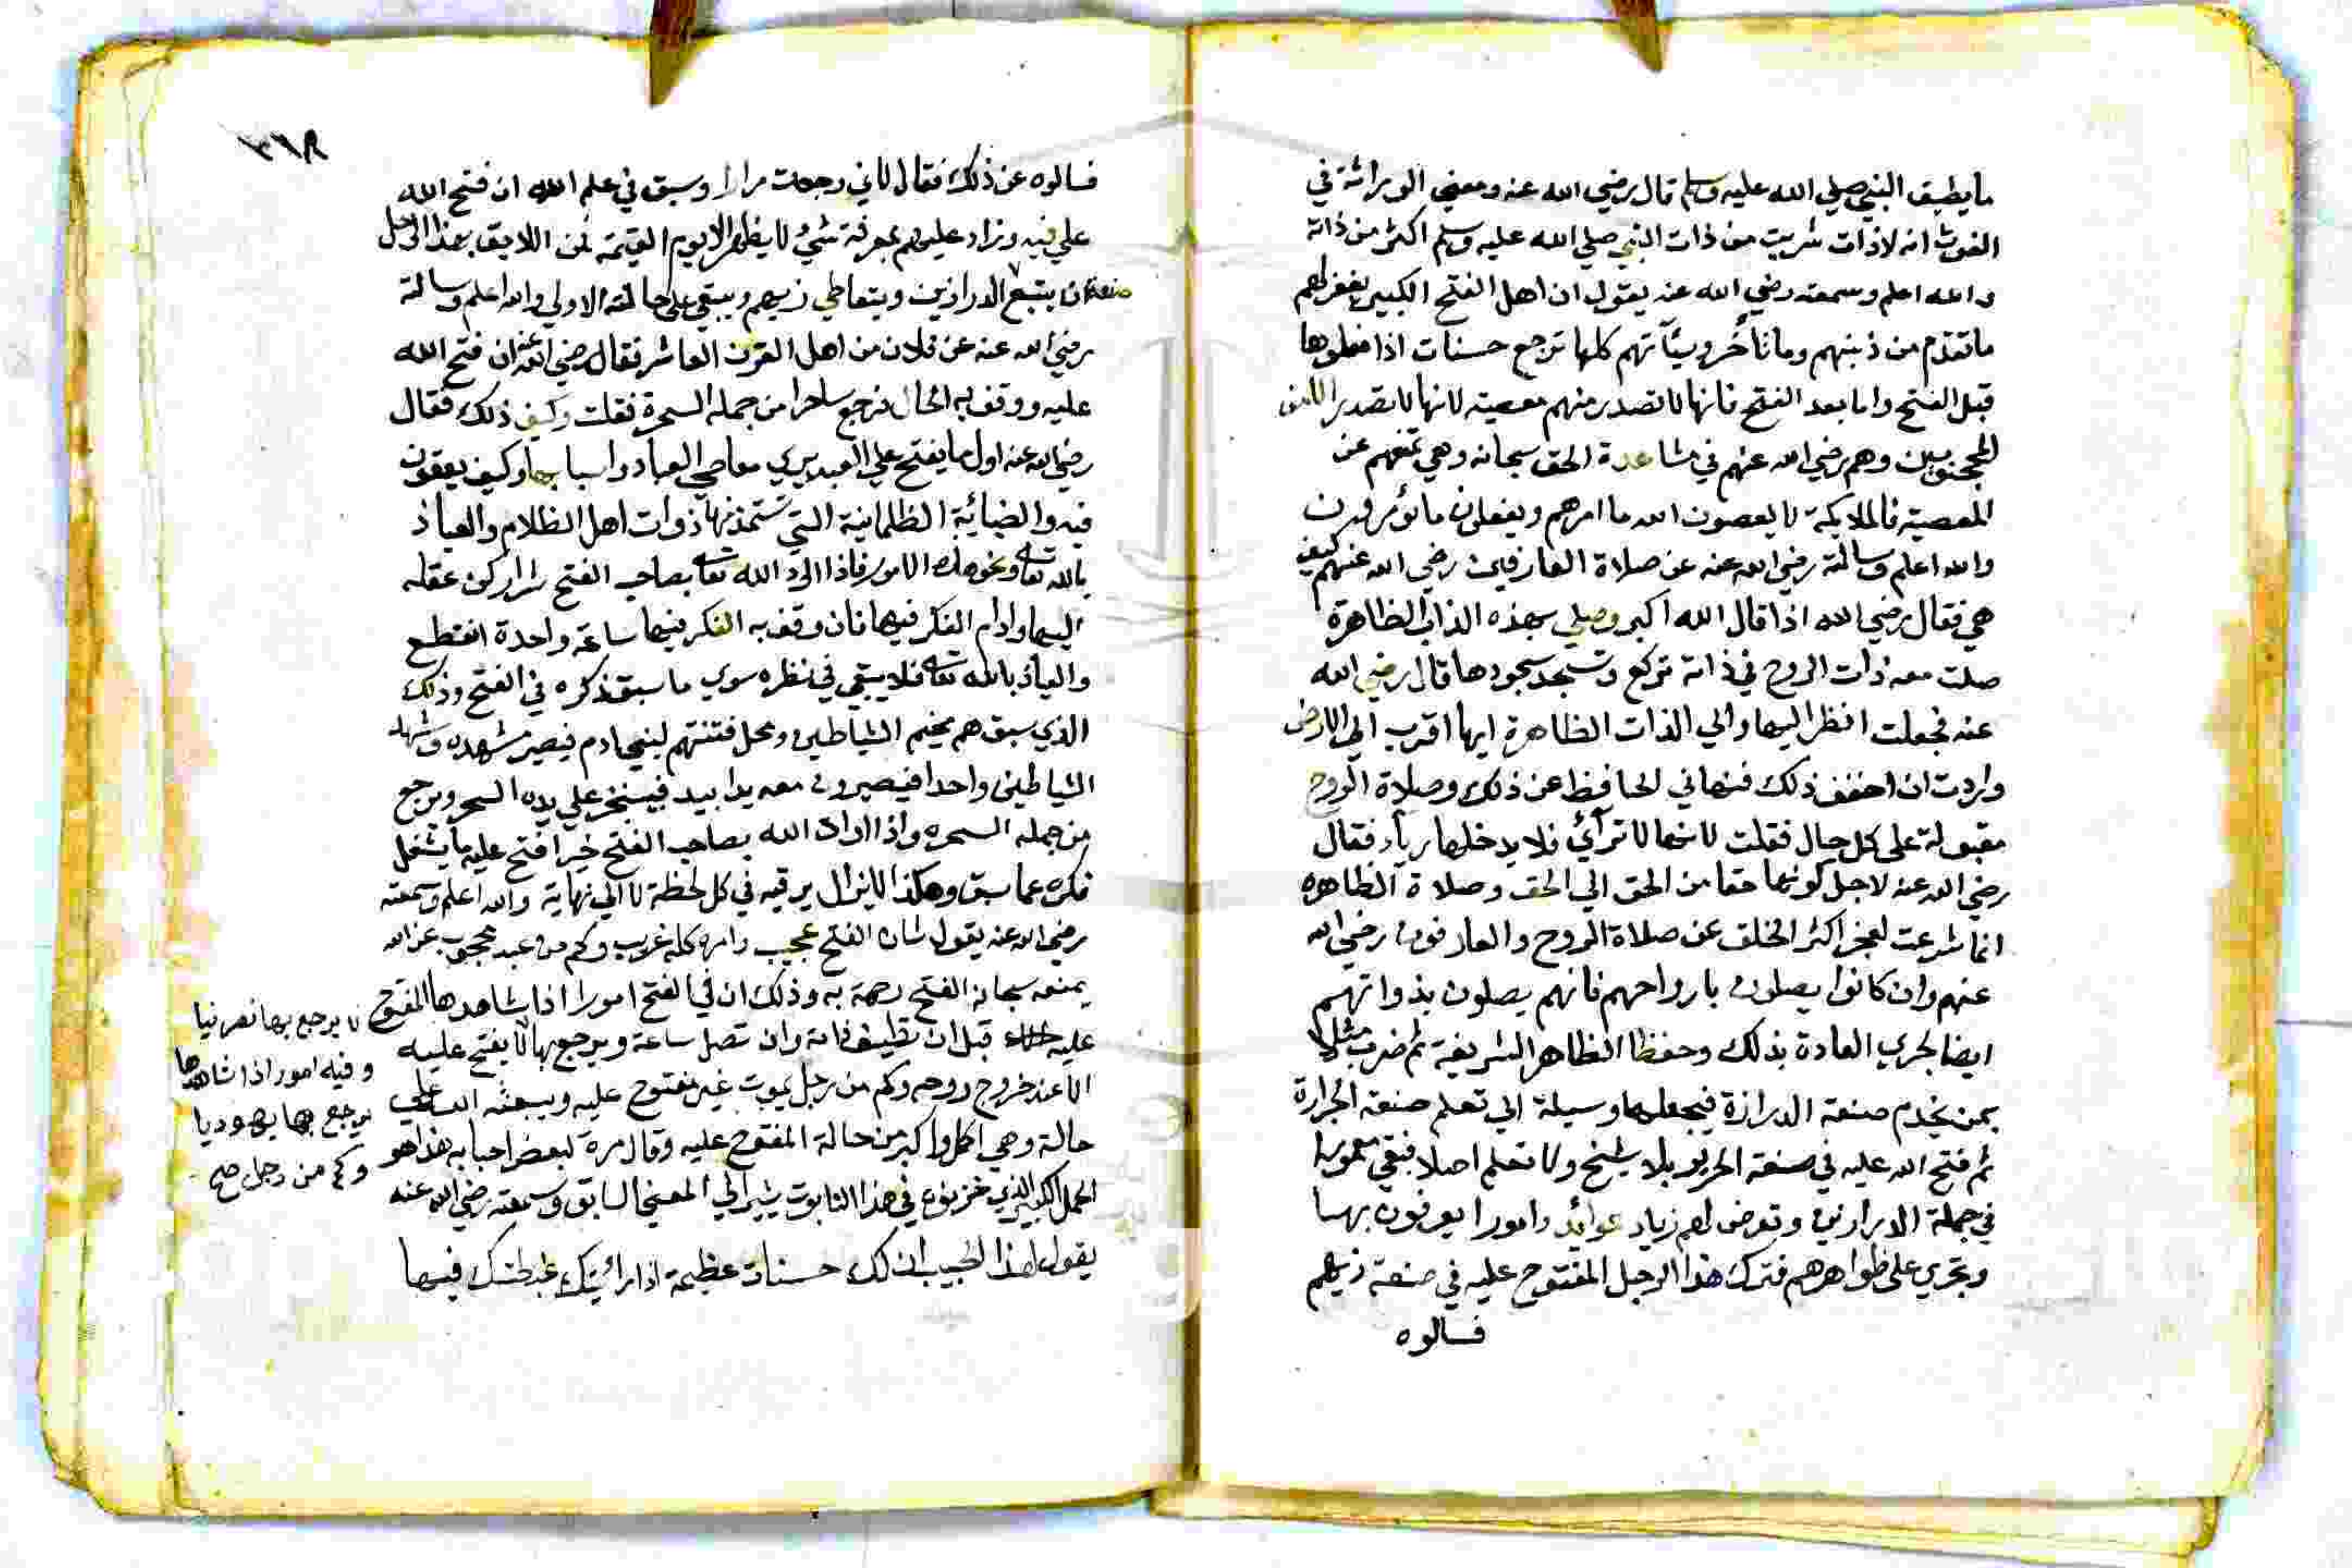 ما يطيق النبي صلي الله عليه وسلم قال رضي الله عنه ومعني الوراثة في
الغوث انه لا ذات شربت من ذات النبي صلي الله عليه وسلم اكثر من ذاته
والله اعلم وسمعته رضي الله عنه يقول ان اهل الفتح الكبير يغفر لهم
ما تقدم من ذنبهم وما تأخر وسيأتهم كلها ترجع حسنات اذا فعلوها
قبل الفتح واما بعد الفتح فانها لا تصدر منهم معصية لانها لا تصدر الا من
المحجوبين وهم رضي الله عنهم في مشاهدة الحق سبحانه وهي تمنعهم عن
المعصية فالملايكة لا يعصون الله ما امرهم ويفعلون ما يؤمرون
والله اعلم وسالته رضي الله عنه عن صلاة العارفين رضي الله عنهم كيف
هي فقال رضي الله اذا قال الله اكبر وصلي بهذه الذات الظاهرة
صلت معه ذات الروح في ذاته تركع وتسجد سجودها قال رضي الله
عنه فجعلت انظر اليها والي الذات الظاهرة ايها اقرب الي الارض
واردت ان احقق ذلك فنهاني الحافظ عن ذلك وصلاة الروح
مقبولة على كل حال فقلت لانها لا ترآئ فلا يدخلها رياء فقال
رضي الله عنه لاجل كونها حقا من الحق الي الحق وصلاة الظاهره
انما شرعت لعجز اكثر الخلق عن صلاة الروح والعارفون رضي الله
عنهم وان كانوا يصلون بارواحهم فانهم يصلون بذواتهم
ايضا لجري العادة بذلك وحفظا لظاهر الشريفة ثم ضرب مثلا
بمن يخدم صنعة الدرازة فيجعلها وسيلة الي تعلم صنعة الحرارة
ثم فتح الله عليه في صنعة الحرير بلا شيخ ولا تعلم اصلا فبقي
في جملة الدرازين وتعرض لهم زياد عوائد وامورا يعرفون بها
وتجري على ظواهرهم فترك هذا الرجل المفتوح عليه في صنعة زيهم
فسالوه
فسالوه عن ذلك فقال لاني رجعت درازا وسبق في علم الله ان فتح الله
علي فيه وزاد عليهم بمعرفة شئ لا يظهر الا يوم القيمة لكن اللايق بهذا الرجل
ان يتبع الدرازين ويتعاطي زيهم ويبقي على حالته الاولي والله اعلم وسالته
رضي الله عنه عن فلان من اهل القرن العاشر فقال رضي الله عنه ان فتح الله
عليه ووقف به الحال فرجع ساحرا من جملة السحرة فقلت وكيف ذلك فقال
رضي الله عنه اول ما يفتح علي العبد يري معاصي العباد واسبابها وكيف يقعون
فيه والضبائية الظلمانية التي تستمد منها ذوات اهل الظلام والعياذ
بالله تعالى ونحو هذه الامور فاذا اراد الله تعالى بصاحب الفتح شرا ركن عقله
اليها وادام الفكر فيها فان وقف به الفكر فيها ساعة واحدة انقطع
والعياذ بالله تعالى فلا يبقي في نظره سوي ما سبق ذكره في الفتح وذلك
الذي سبق هم مخيم الشياطين ومحل فتنتهم لبني ادم فيصير مشهده ومشهد
الشياطين واحدا فيصيرون معه يدا بيد فيسخر علي يده السحر ويرجع
من جملة السحره واذا اراد الله بصاحب الفتح خيرا فتح عليه ما يشغل
فكره عما سبق وهكذا لا يزال يرقيه في كل لحظة لا الي نهاية والله اعلم وسمعته
رضي الله عنه يقول شان الفتح عجيب وامره كله غريب وكم من عبد محجوب عن الله
يمنعه سبحانه الفتح رحمة به وذلك ان في الفتح امورا اذا شاهدها المفتوح
عليه قبل ان تطيق ذاته وان تصل ساعة ويرجع بها لا يفتح عليه
الا عند خروج روحه وكم من رجل يموت غير مفتوح عليه ويبعثه الله على
حالة وهي اكمل واكبر من حالة المفتوح عليه وقال مرة لبعض احبابه هذا هو
الحمل الكبير الذي خزنوه في هذا التابوت يشير الي المعني السابق وسمعته رضي الله عنه
يقول لهذا الحبيب ان لك حسنات عظيمة اذا رأيتك غبطتك فيها
لا يرجع بها نصرانيا
وفيه امور اذا شاهدها
يرجع بها يهوديا
وكم من رجل صح